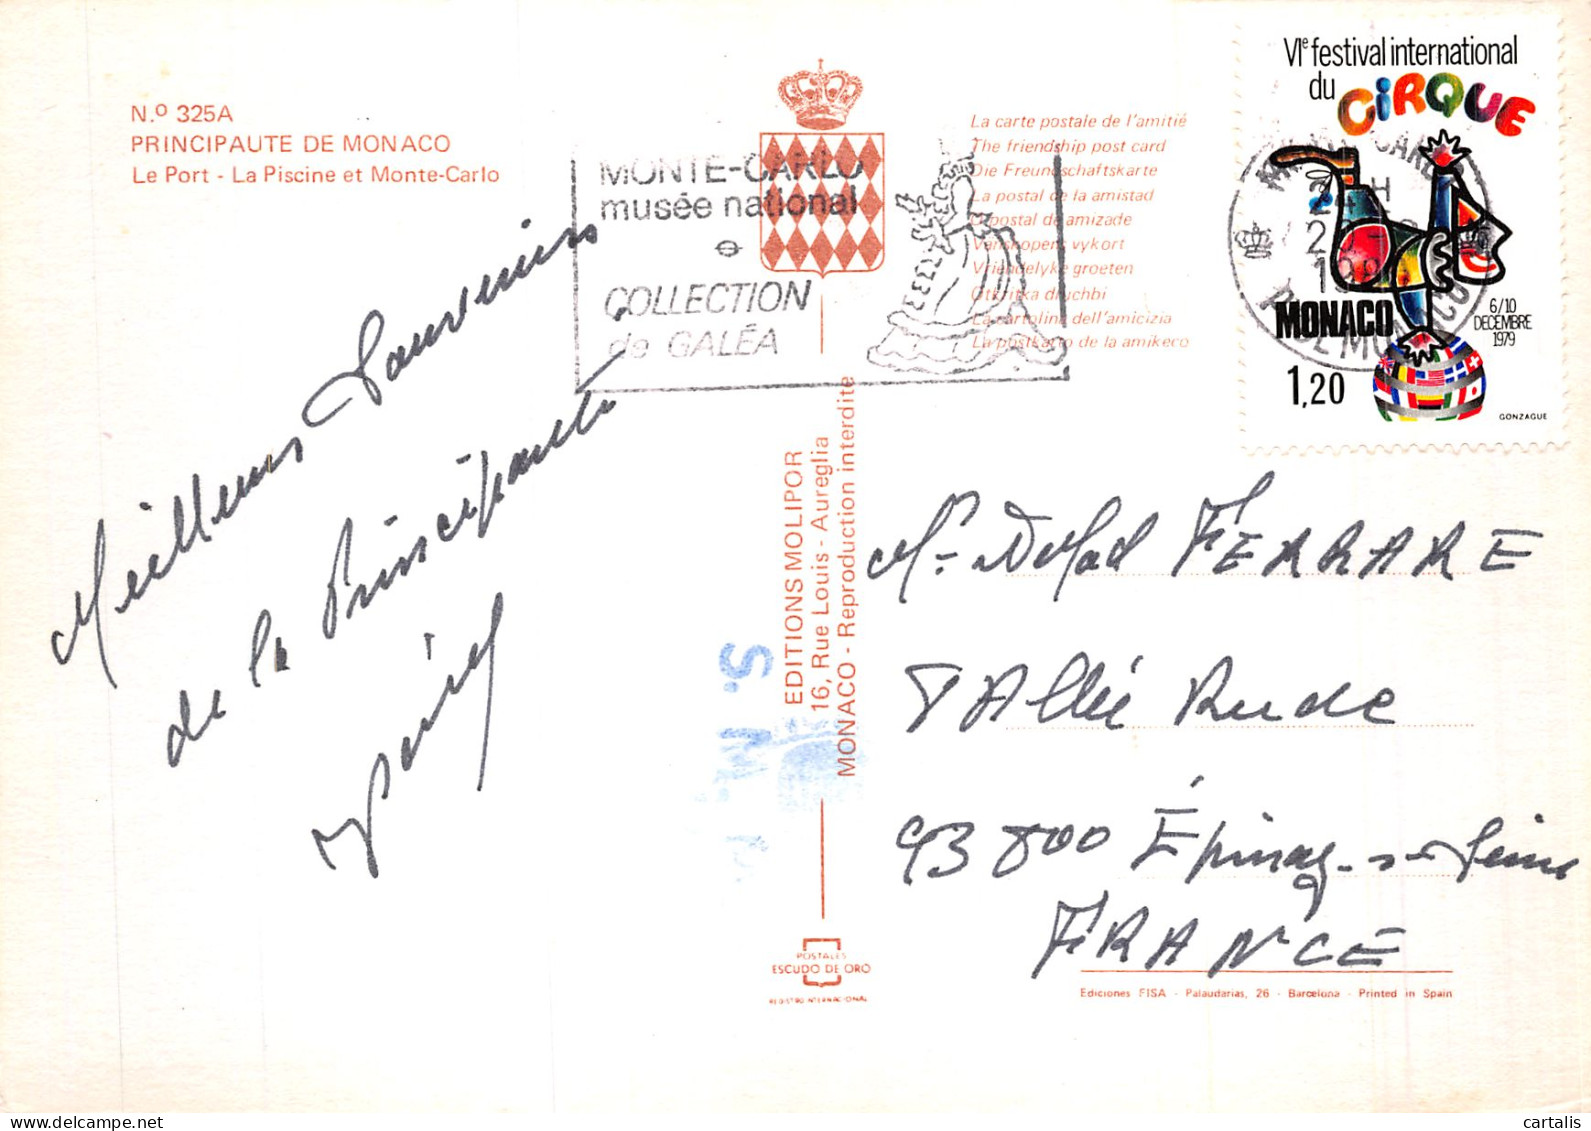 N.º 325A
PRINCIPAUTE DE MONACO
Le Port - La Piscine et Monte-Carlo
Meilleurs Souvenirs
de la Principauté
MONTE-CARLO
musée national
COLLECTION
de GALÉA
La carte postale de l'amitié
The friendship post card
Die Freundschaftskarte
La postal de la amistad
O postal de amizade
Vanskopens vykort
Vriendelyke groeten
Otkritka druchbi
La cartolina dell'amicizia
La postkarto de la amikeco
VIe festival international
du CIRQUE
MONACO
6/10
DECEMBRE
1979
1,20
GONZAGUE
EDITIONS MOLIPOR
16, Rue Louis - Aureglia
MONACO - Reproduction interdite
S. M.
FERRARE
Allée Rude
93800 Épinay-sur-Seine
FRANCE
POSTALES
ESCUDO DE ORO
REGISTRO INTERNACIONAL
Ediciones FISA - Palaudarias, 26 - Barcelona - Printed in Spain
cartalis